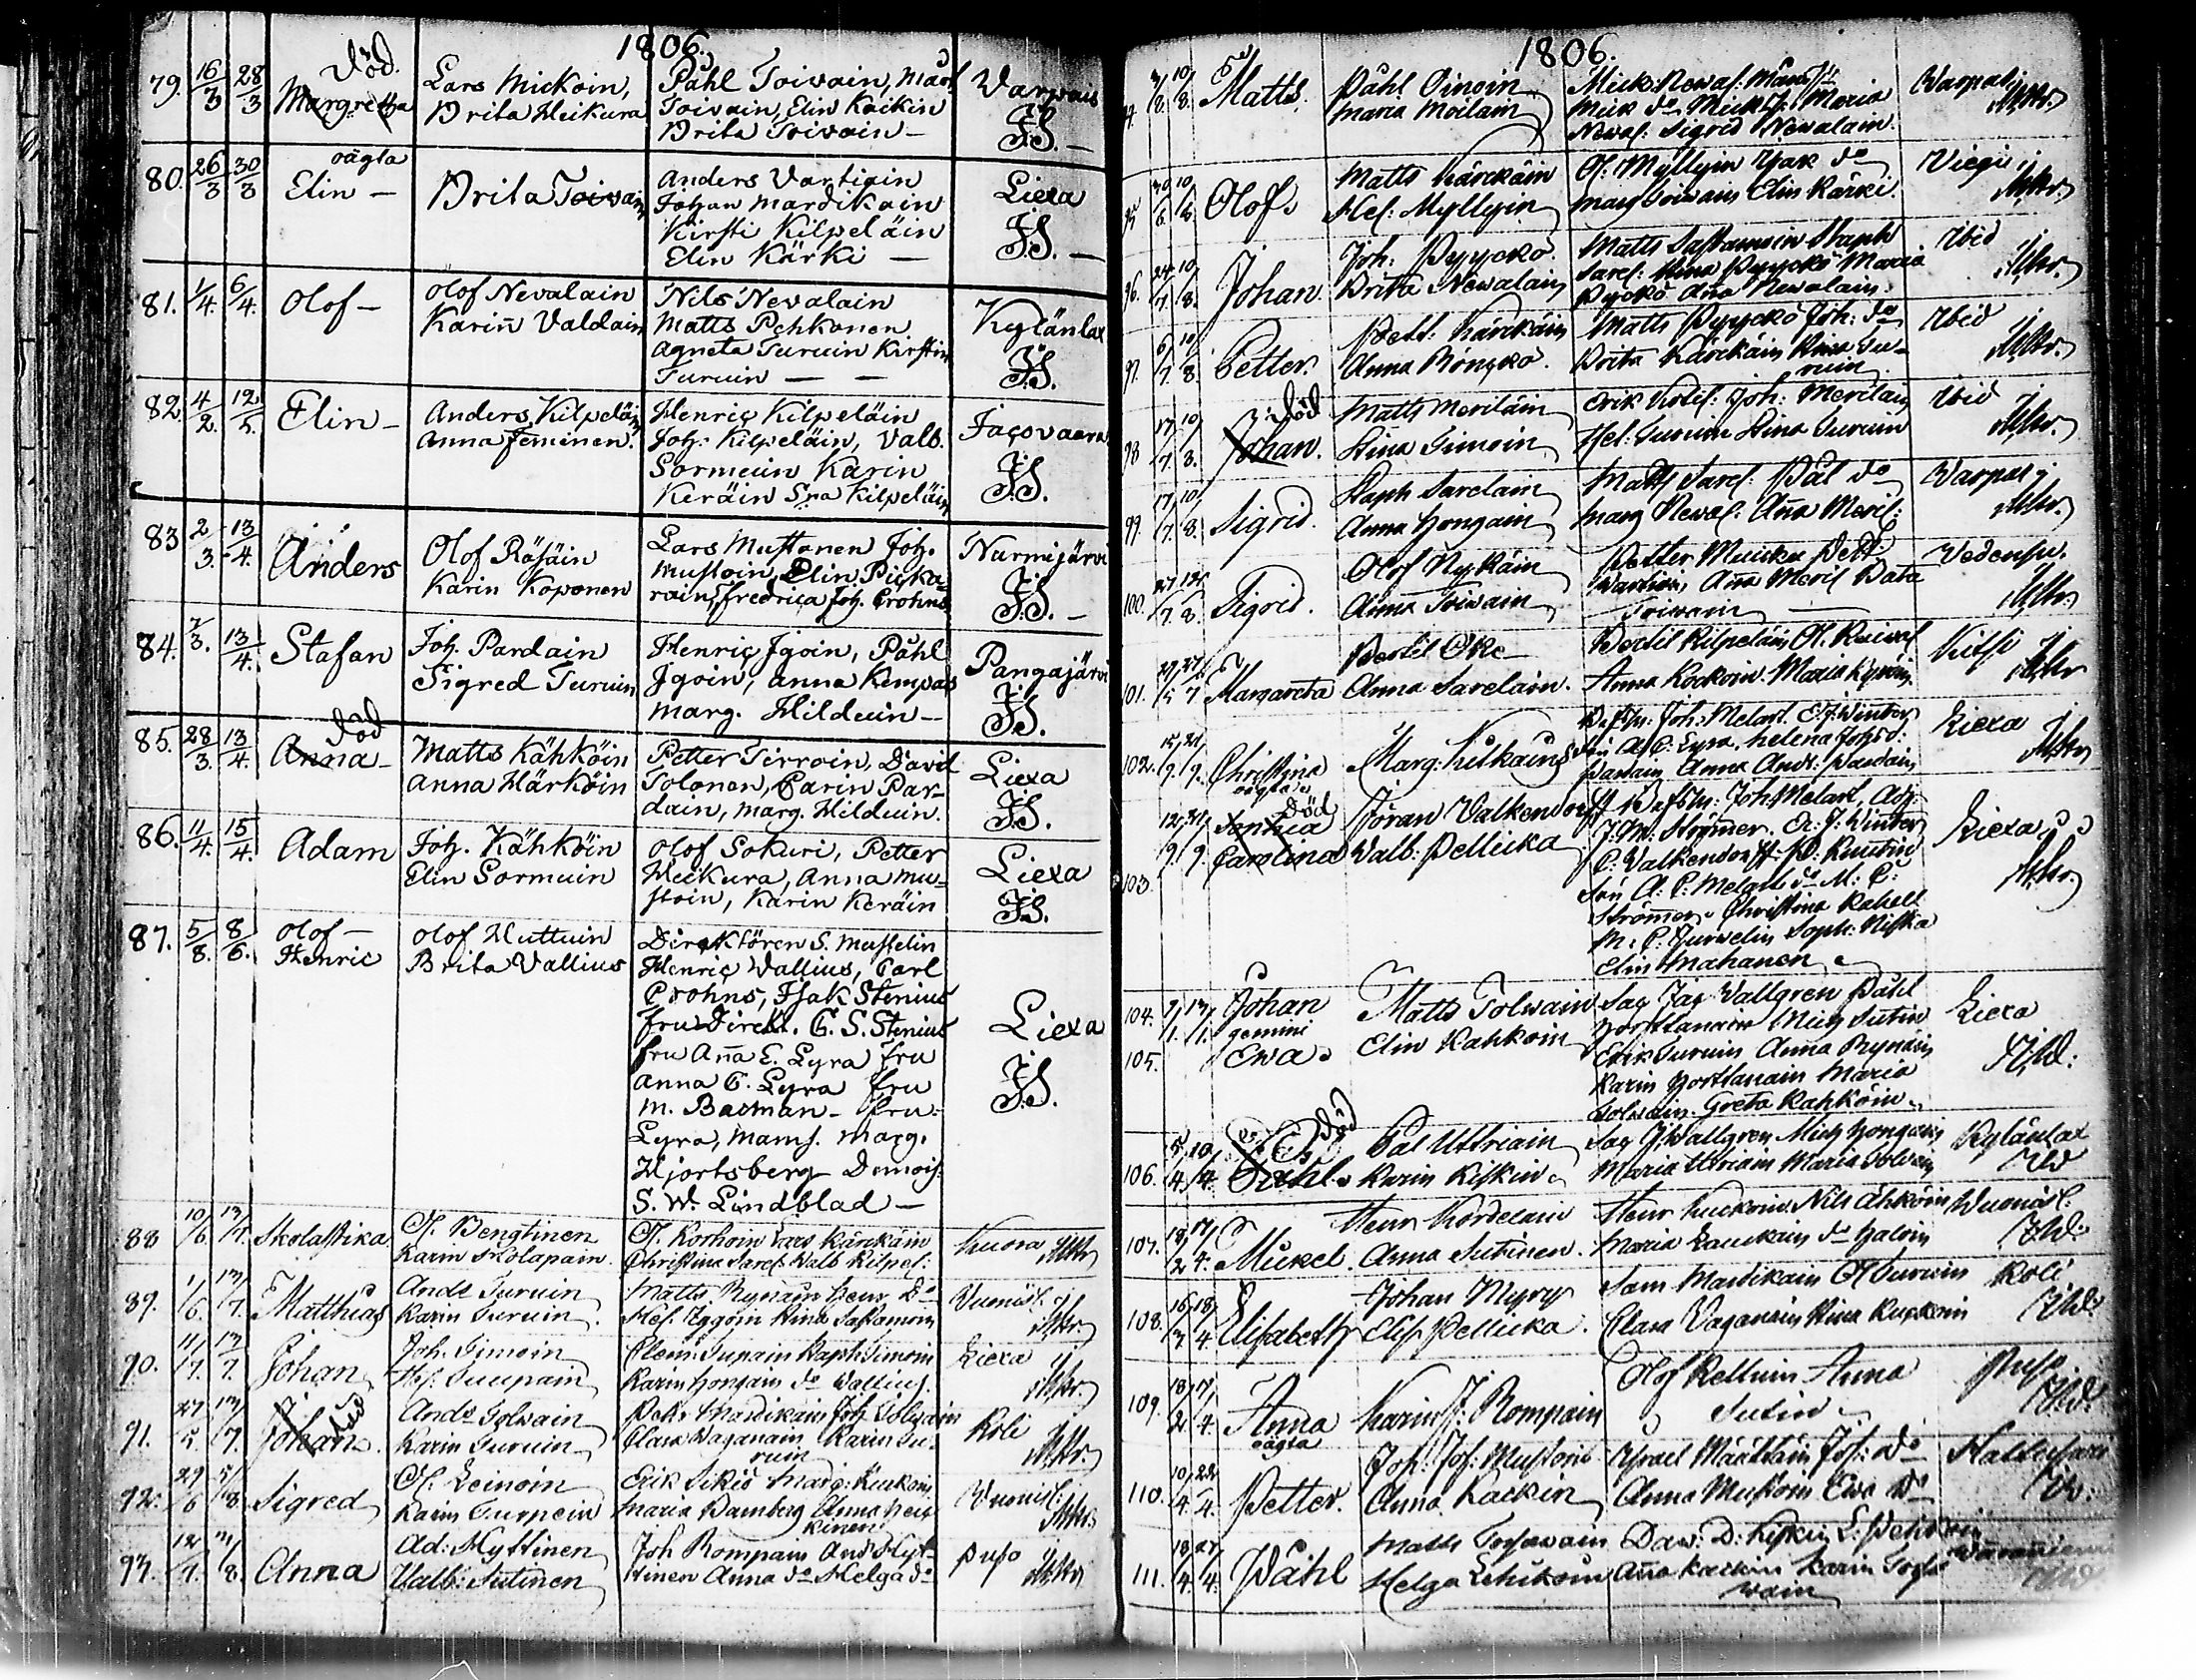 1806.
79. 16/3 28/3 död. Margretha
Lars Mickoin,
Brita Heikura
Påhl Toivain, Marg
Toivain, Elin Kackin
Brita Toivain —
Varpais
JS. —
80. 26/3 30/3 oägta
Elin —
Brita Toivain
Anders Vartiain
Johan Mardikain
Kirsti Kilpeläin
Elin Kärki —
Liexa
JS. —
81. 1/4. 6/4. Olof —
Olof Nevalain
Karin Valdain
Nils Nevalain
Matts Pehkonen
Agneta Turuin Kirstin
Turuin — —
Kylänlax
JS.
82. 4/2. 12/2. Elin —
Anders Kilpeläin
Anna Jeminen.
Henric Kilpeläin
Joh: Kilpeläin, Valb.
Sormuin Karin
Keräin Sra Kilpeläin
Jacovaara
JS.
83 2/3. 13/4. Anders
Olof Räsäin
Karin Koponen
Lars Mustonen Joh.
Mustoin, Elin Pirka
rain, fredrica Joh. Crohns
Nurmijärvi
JS. —
84. 7/3. 13/4. Stafan
Joh. Pardain
Sigred Turuin
Henric Jgoin, Påhl
Jgoin, Anna Kempas
Marg. Hilduin —
Pangajärvi
JS.
85. 28/3. 13/4. död
Anna —
Matts Kähköin
Anna Härköin
Petter Tirroin, David
Tolonen, Carin Par-
dain, Marg. Hilduin.
Liexa
JS.
86. 11/4. 15/4. Adam
Joh. Kähköin
Elin Sormuin
Olof Sokuri, Petter
Heikura, Anna Mu-
stoin, Karin Keräin
Liexa
JS.
87. 5/8. 8/6. Olof —
Henric
Olof Huttuin
Brita Vallius
Direktören S. Musselin
Henric Wallius, Carl
Crohns, Isak Stenius
fru Direkt. C. S. Stenius
fru Aña E. Lyra fru
Anna C. Lyra fru
M. Basman — fru
Lyra, Mams. Marg.
Hjortsberg Demois.
S. W. Lindblad —
Liexa
JS.
88 10/6. 13/7. Skolastika
Ol. Bengtinen
Karin Skolapain
Ol. Korhoin Lars Kärckäin
Christina Sarel. Walb Kilpel:
Kuora
89. 1/6. 13/7. Matthias
Ands Turuin
Karin Turuin.
Matts Rynäin Henr Do
Hel. Iggoin Stina Sastamoin
Vuonisl.
90. 11/7. 13/7. Johan
Joh. Timoin
Hel. Suupain
Clem: Supain Raph: Timoin
Karin Hongain do Wallius
Liexa
91. 27/5. 13/7. Johan död
Ands Tolwain
Karin Turuin
Petr. Mardikain Joh. Tolwain
Clara Waganain Karin Tu-
ruin
Koli
92. 29/6 5/8. Sigred
Ol. Leinoin
Karin Turpein
Erik Sikiö Marg: Kuckoin
Maria Ramberg Anna Hey-
kinen
Vuonisl.
93. 12/7. 3/8. Anna
Ad: Hyttinen
Walb: Sutinen
Joh Rompain And Hyt-
tinen Anna do Helga do
Puso
1806.
94. 3/8. 10/8. Matts.
Påhl Oinoin
Maria Moilain
Mick: Newal. Måns
Mick do Mickl. Maria
Newal. Sigrid Newalain.
Varpasj
95. 30/6 10/8 Olof.
Matts Kärckäin
Hel: Myllyin
Ol: Myllyin Isak do
Marg Toiwain Elin Kärki.
Viegij
96. 24/7 10/8. Johan
Joh: Pyyckö.
Brita Newalain
Matts Sastamoin Staph
Sarel: Stina Pyyckö Maria
Pyckö Aña Newalain.
Ibid
97. 6/7 10/8. Petter.
Pett: Kärckäin
Anna Rönckö.
Matts Pyyckö Joh: do
Brita Kärckäin Stina Tu-
ruin
Ibid
98. 17/7 10/8. död
Johan.
Matts Meriläin
Stina Timoin
Erik Kotil: Joh: Merilain
Hel: Turuin Stina Turuin
Ibid
99. 17/7 10/8. Sigrid.
Staph Sarelain
Anna Hongain
Matts Sarel: Pål do
Marg Newal: Aña Meril:
Varpasj
100. 27/7 12/8. Sigrid.
Olof Nykäin
Aña Toiwain
Petter Muicku Pett
Wartiain Aña Meril Bata
Toiwain —
Vedensu.
101. 27/5 27/7 Margareta
Bertil Oke —
Anna Sarelain.
Bertil Kilpeläin Ol. Raiwal
Anna Kockoin Maria Kyröin
Viitsi
102. 15/9. 21/9. Christina
oägta
Marg: Kilkain
Befsm: Joh: Melart. E. J: Winter
Fru A: C: Lyra, Helena Johsd:
Pardain Anna Ands: Pardain
Liexa
103. 12/9. 21/9. död
Sophia
Carolina
Jöran Valkendorff
Walb: Pellicka
Befsm: Joh: Melart, Adj:
J. M: Strömer. E: J: Winter
C: Valkendorff P: Knutin
Fru A: C: Melart do M: C:
Strömer. Christina Kahell
M: C: Jurwelin Soph: Niska
Elin Mahanen
Liexa
104. 7/1. 13/1. Johan
gemini
105. Ewa.
Matts Tolwain
Elin Kahkoin
Sag Jac Vallgren Påhl
Horttanain Mich Sutin
Erik Turuin Anna Rynäin
Karin Horttanain Maria
Tolwain. Greta Kahköin.
Liexa
106. 5/4 10/4. död
Påhl.
Pål Uttriain
Karin Kiskin
Sag J Wallgren Mich Hongain
Maria Uttriain Maria Tolvain
Kylänlax
107. 18/2 17/4. Mickel.
Henr Kordelain
Anna Sutinen.
Henr Kuckoin Nils Ähköin
Maria Lauckain do Haloin
Wuonisl.
108. 16/3 18/4. Elisabeth
Johan Nyryy
Elis Pellicka.
Sam Mardikain Ol Turuin
Clara Vaganain Stina Kuckoin
Koli
109. 18/2 17/4. Anna
oägta
Karin J: Rompain
Olof Reltuin Anna
Sutin
Puso
110. 10/4. 22/4. Petter.
Joh: Jos: Mustoin
Anna Kackin
Israel Määttäin Jos: do
Anna Mustoin Ewa do
111. 18/4 27/4. Påhl
Matts Toiwain
Helga Lehikoin
Aña Kackin Karin Toi-
wain